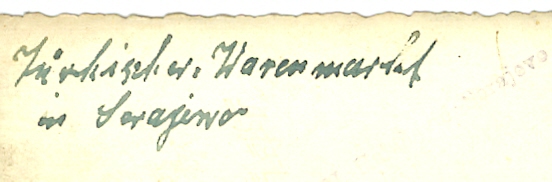 Türkischer. Warenmarkt
in Serajewo